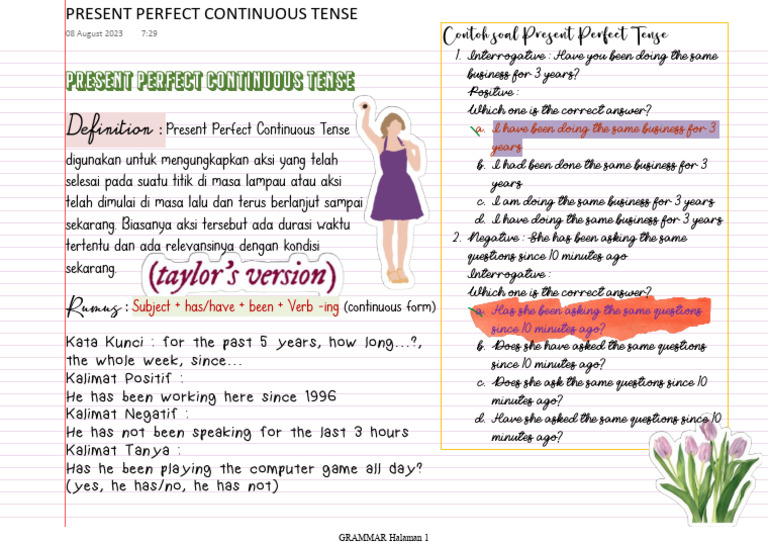 PRESENT PERFECT CONTINUOUS TENSE
08 August 2023 7:29
PRESENT PERFECT CONTINUOUS TENSE
Definition : Present Perfect Continuous Tense
digunakan untuk mengungkapkan aksi yang telah
selesai pada suatu titik di masa lampau atau aksi
telah dimulai di masa lalu dan terus berlanjut sampai
sekarang. Biasanya aksi tersebut ada durasi waktu
tertentu dan ada relevansinya dengan kondisi
sekarang.
(taylor's version)
Rumus : Subject + has/have + been + Verb -ing (continuous form)
Kata Kunci : for the past 5 years, how long...?,
the whole week, since...
Kalimat Positif :
He has been working here since 1996
Kalimat Negatif :
He has not been speaking for the last 3 hours
Kalimat Tanya :
Has he been playing the computer game all day?
(yes, he has/no, he has not)
Contoh soal Present Perfect Tense
1. Interrogative : Have you been doing the same
business for 3 years?
Positive :
Which one is the correct answer?
a. I have been doing the same business for 3
years
b. I had been done the same business for 3
years
c. I am doing the same business for 3 years
d. I have doing the same business for 3 years
2. Negative : She has been asking the same
questions since 10 minutes ago
Interrogative :
Which one is the correct answer?
a. Has she been asking the same questions
since 10 minutes ago?
b. Does she have asked the same questions
since 10 minutes ago?
c. Does she ask the same questions since 10
minutes ago?
d. Have she asked the same questions since 10
minutes ago?
GRAMMAR Halaman 1